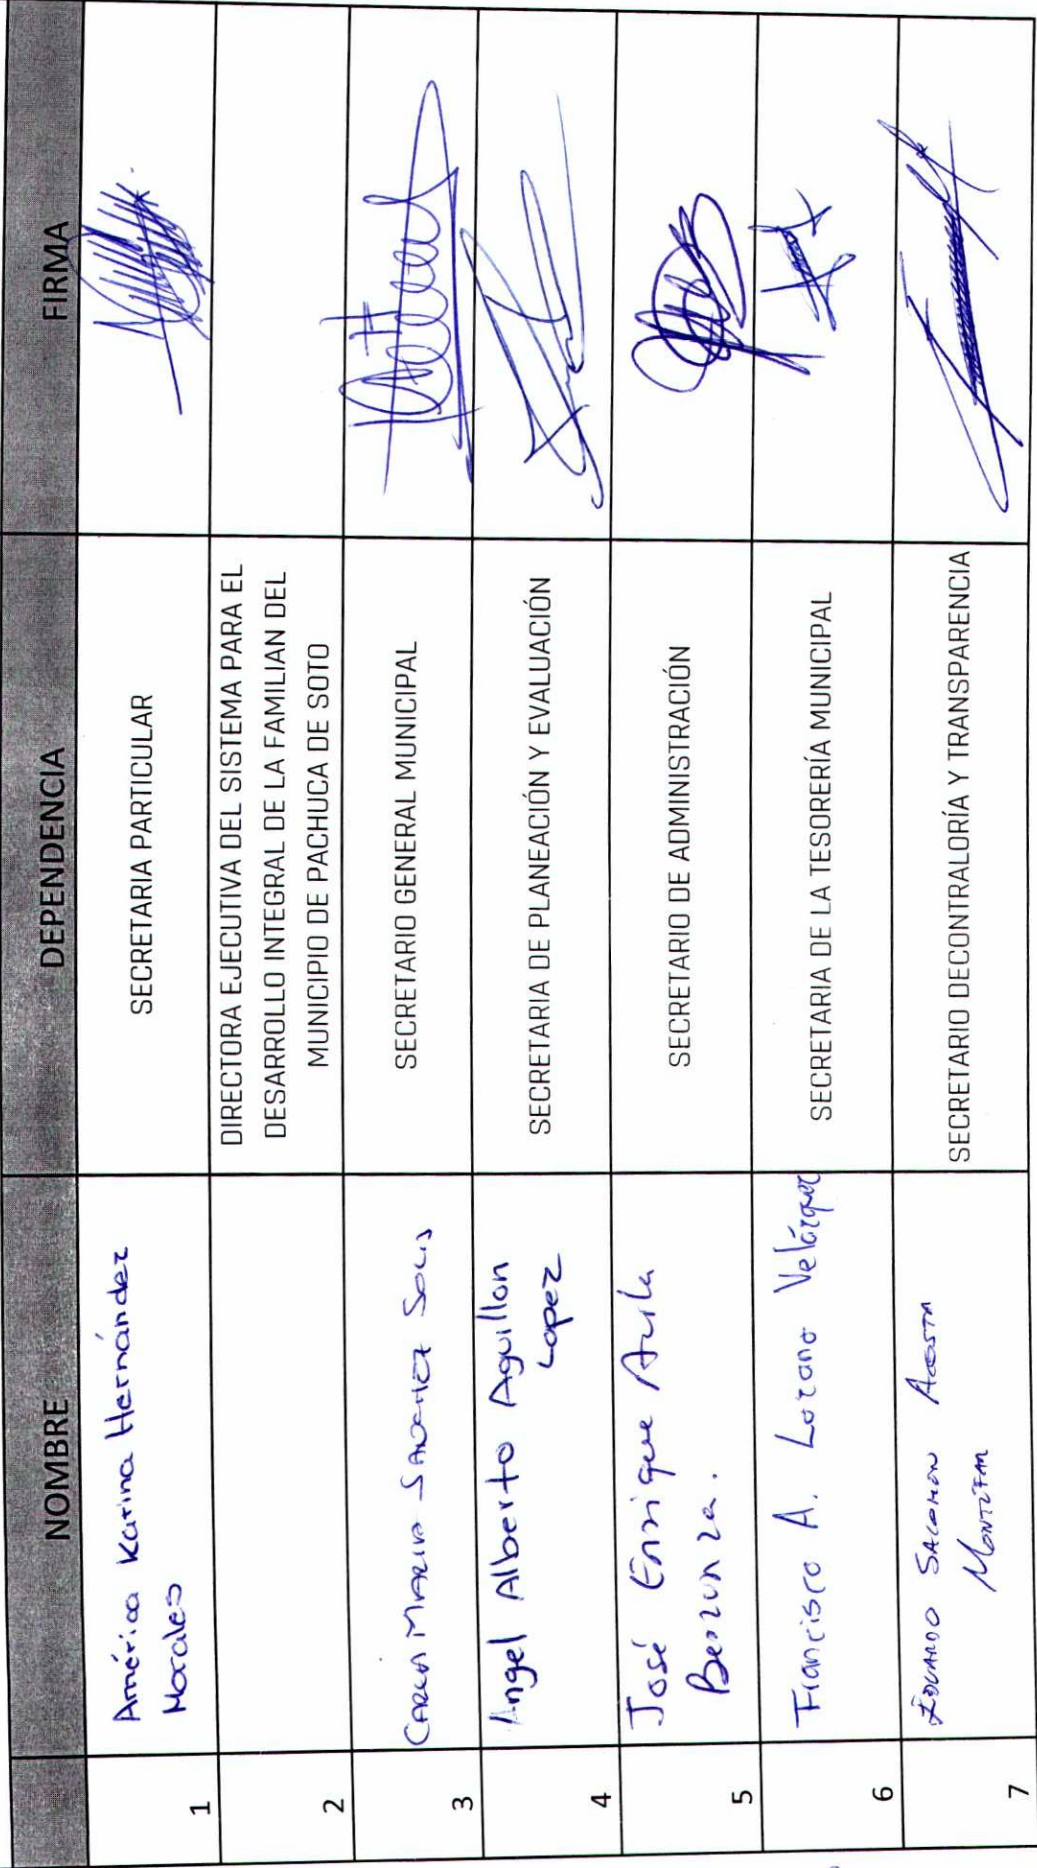 NOMBRE DEPENDENCIA FIRMA
1 América Karina Hernández
Morales
SECRETARIA PARTICULAR
2
DIRECTORA EJECUTIVA DEL SISTEMA PARA EL
DESARROLLO INTEGRAL DE LA FAMILIAN DEL
MUNICIPIO DE PACHUCA DE SOTO
3 CARLA MARIA SANCHEZ SOLIS
SECRETARIO GENERAL MUNICIPAL
4 Angel Alberto Aguillon
Lopez
SECRETARIA DE PLANEACIÓN Y EVALUACIÓN
5 José Enrique Avila
Berzunza.
SECRETARIO DE ADMINISTRACIÓN
6 Francisco A. Lozano Velázquez
SECRETARIA DE LA TESORERÍA MUNICIPAL
7 EDUARDO SALOMON ACOSTA
SECRETARIO DECONTRALORÍA Y TRANSPARENCIA